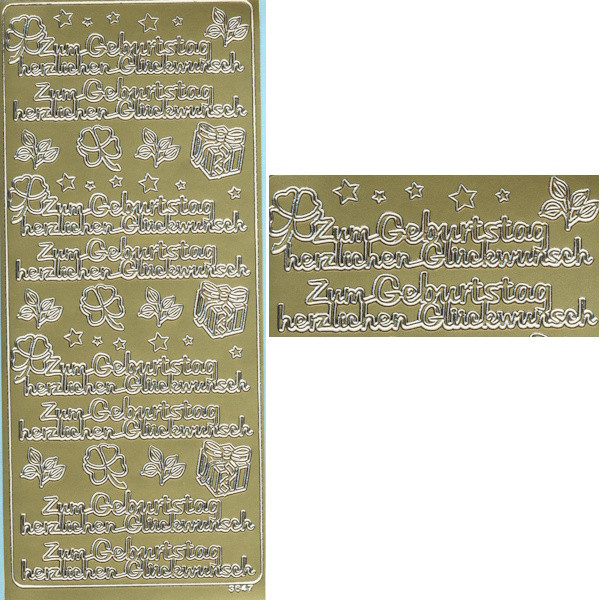 Zum Geburtstag
herzlichen Glückwunsch
Zum Geburtstag
herzlichen Glückwunsch
Zum Geburtstag
herzlichen Glückwunsch
Zum Geburtstag
herzlichen Glückwunsch
Zum Geburtstag
herzlichen Glückwunsch
Zum Geburtstag
herzlichen Glückwunsch
Zum Geburtstag
herzlichen Glückwunsch
Zum Geburtstag
herzlichen Glückwunsch
3647
Zum Geburtstag
herzlichen Glückwunsch
Zum Geburtstag
herzlichen Glückwunsch